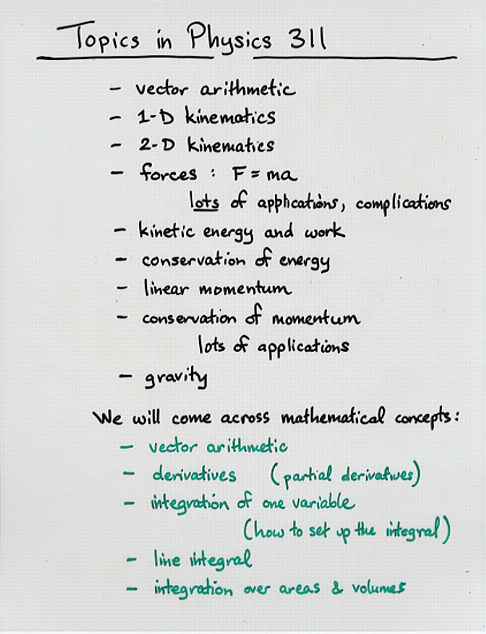 Topics in Physics 311
- vector arithmetic
- 1-D kinematics
- 2-D kinematics
- forces : F = ma
lots of applications, complications
- kinetic energy and work
- conservation of energy
- linear momentum
- conservation of momentum
lots of applications
- gravity
We will come across mathematical concepts:
- vector arithmetic
- derivatives (partial derivatives)
- integration of one variable
(how to set up the integral)
- line integral
- integration over areas & volumes